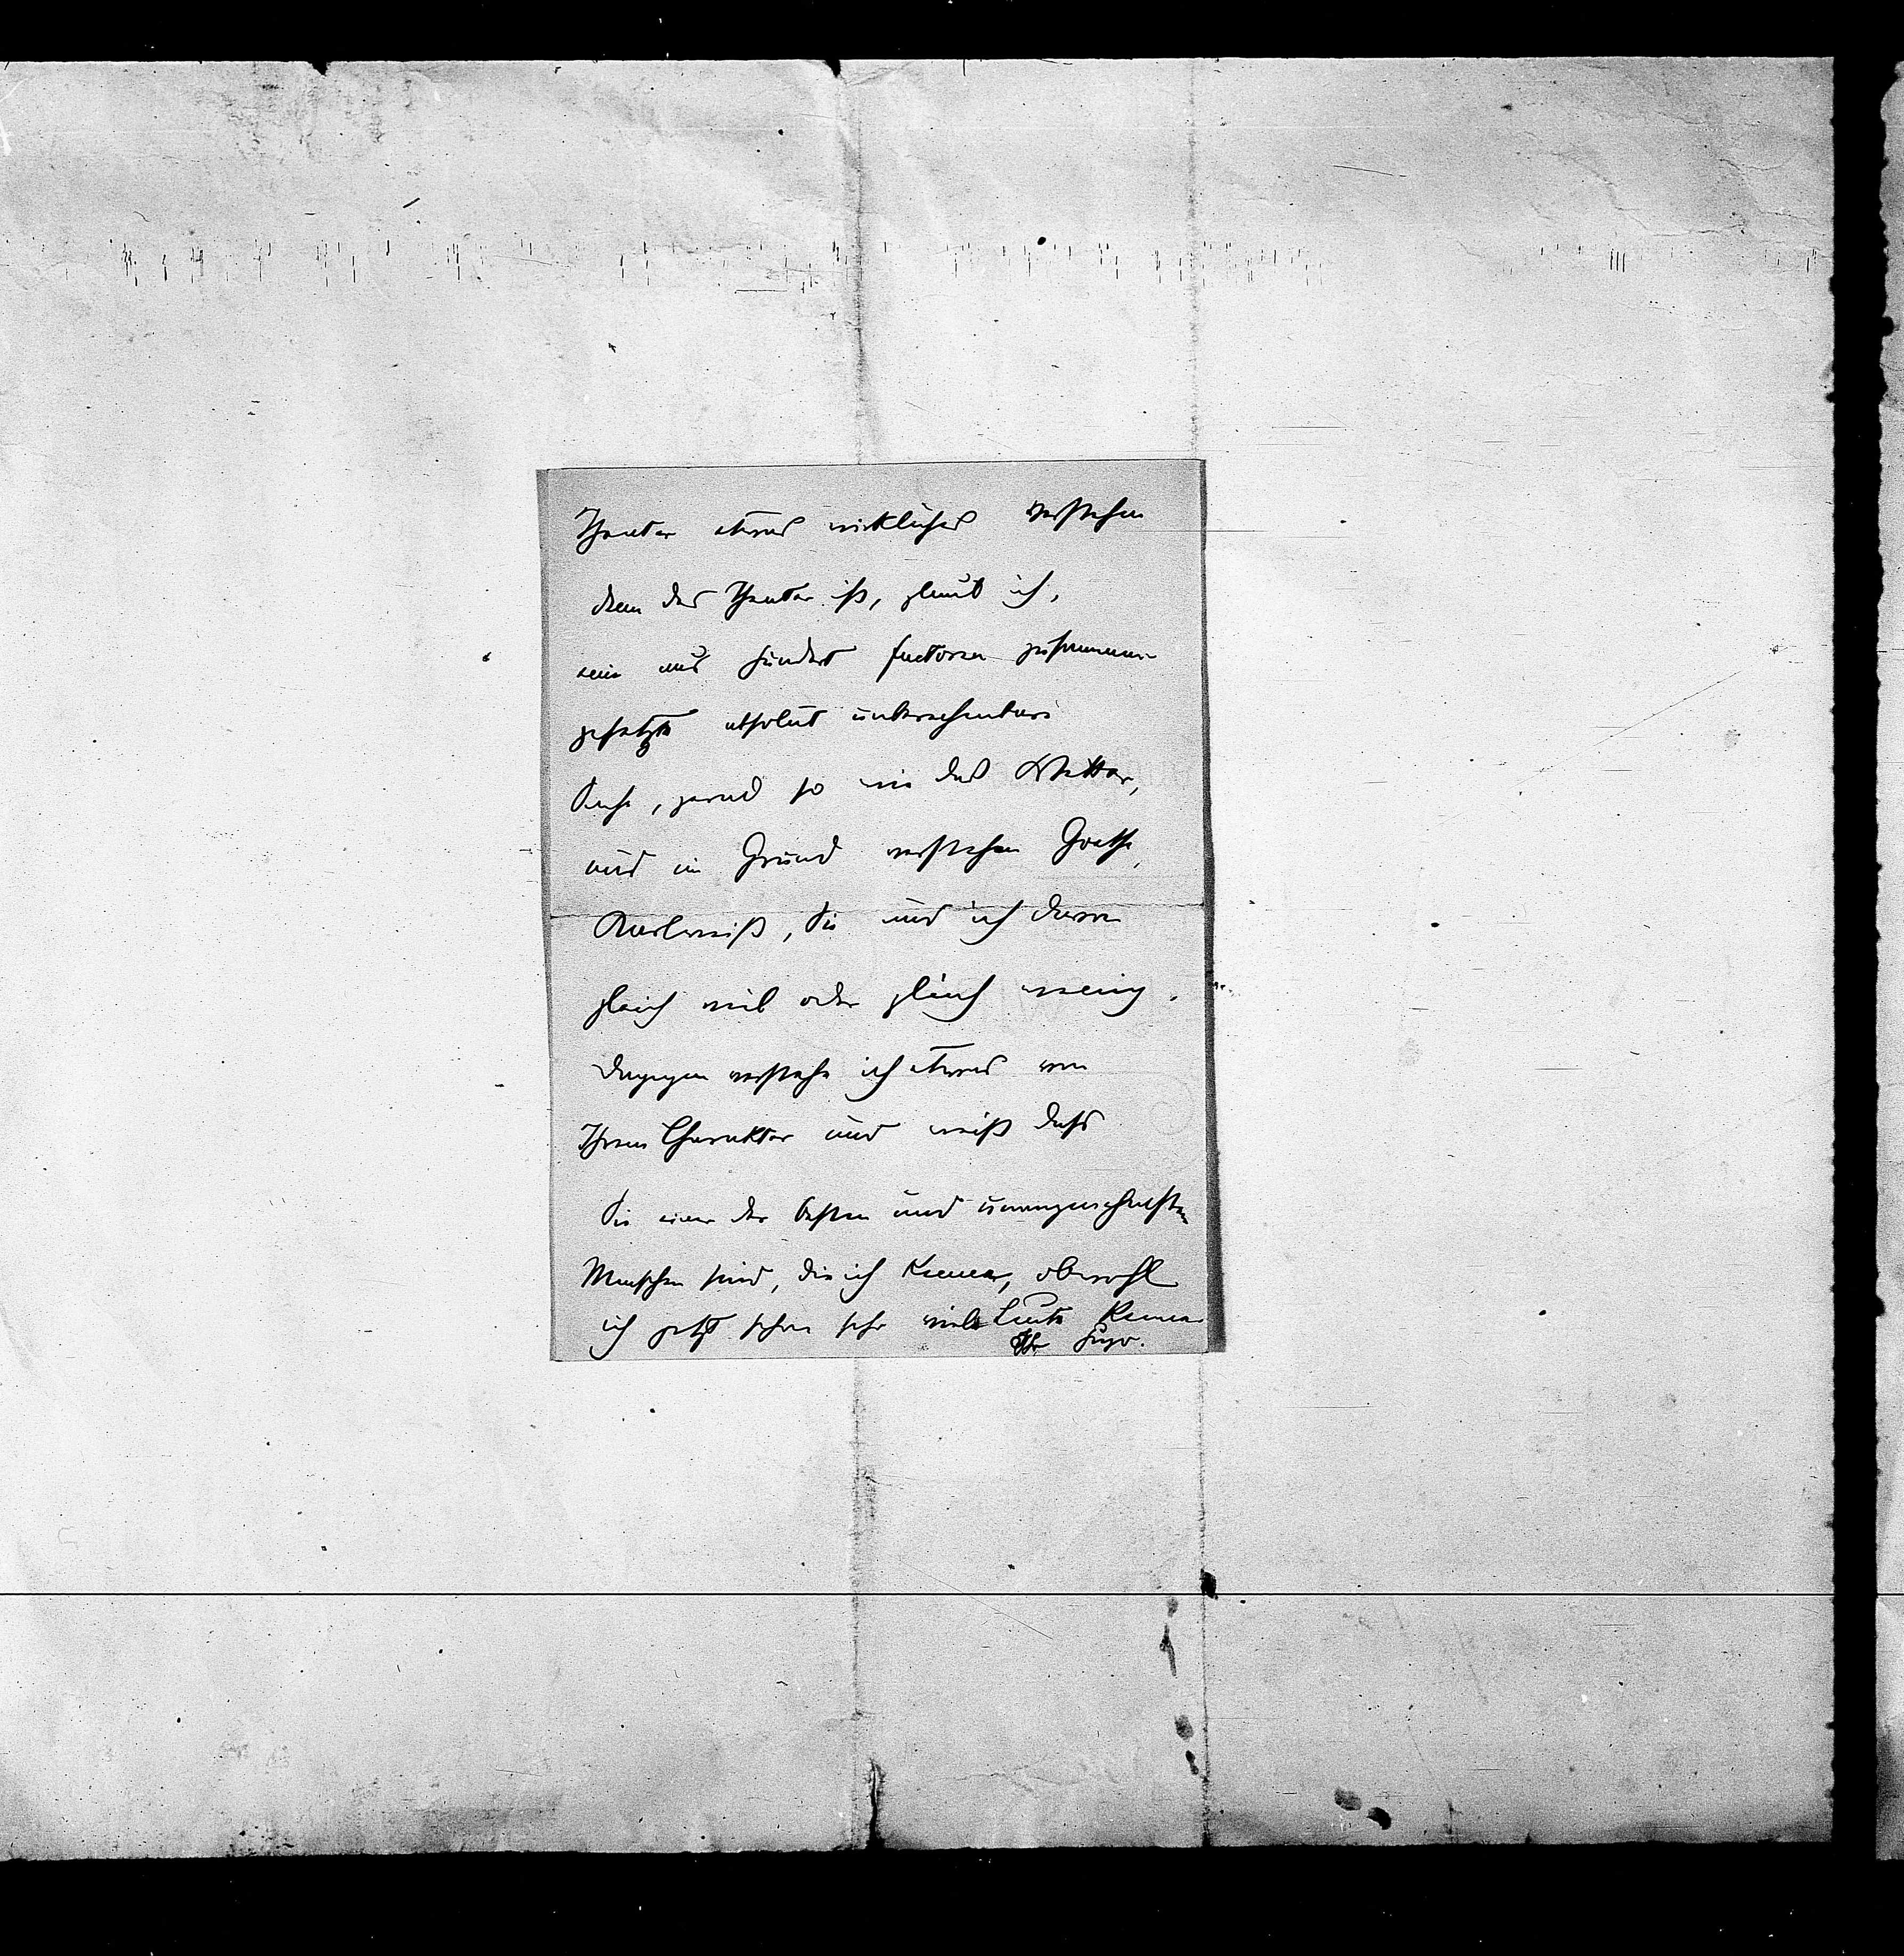 Theater etwas wirkliches verstehen
denn das Theater ist, glaub ich,
eine aus hundert factoren zusammen
gesetzte absolut unberechenbare
Sache, gerad so wie das Wetter,
und im Grund verstehen Goethe,
Karlweiß, Sie und ich davon
gleich viel oder gleich wenig.
Dagegen verstehe ich etwas von
Ihrem Charakter und weiß dass
Sie einer der besten und unangenehmsten
Menschen sind, die ich kenne, obwohl
ich jetzt schon sehr viele Leute kenne
Ihr Hugo.